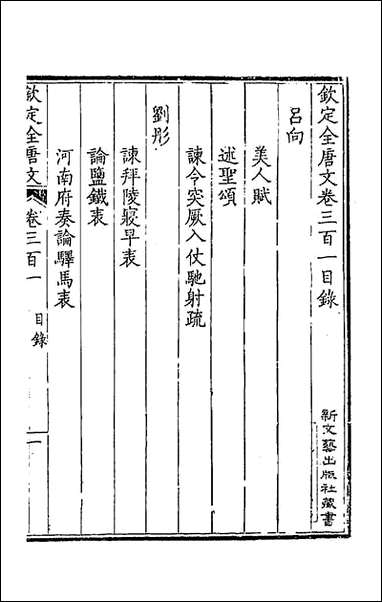 欽定全唐文卷三百一目錄
呂向
美人賦
述聖頌
諫令突厥入仗馳射疏
劉彤
諫拜陵寢早表
論鹽鐵表
河南府奏論驛馬表
欽定全唐文
卷三百一
目錄
一
新文藝出版社藏書